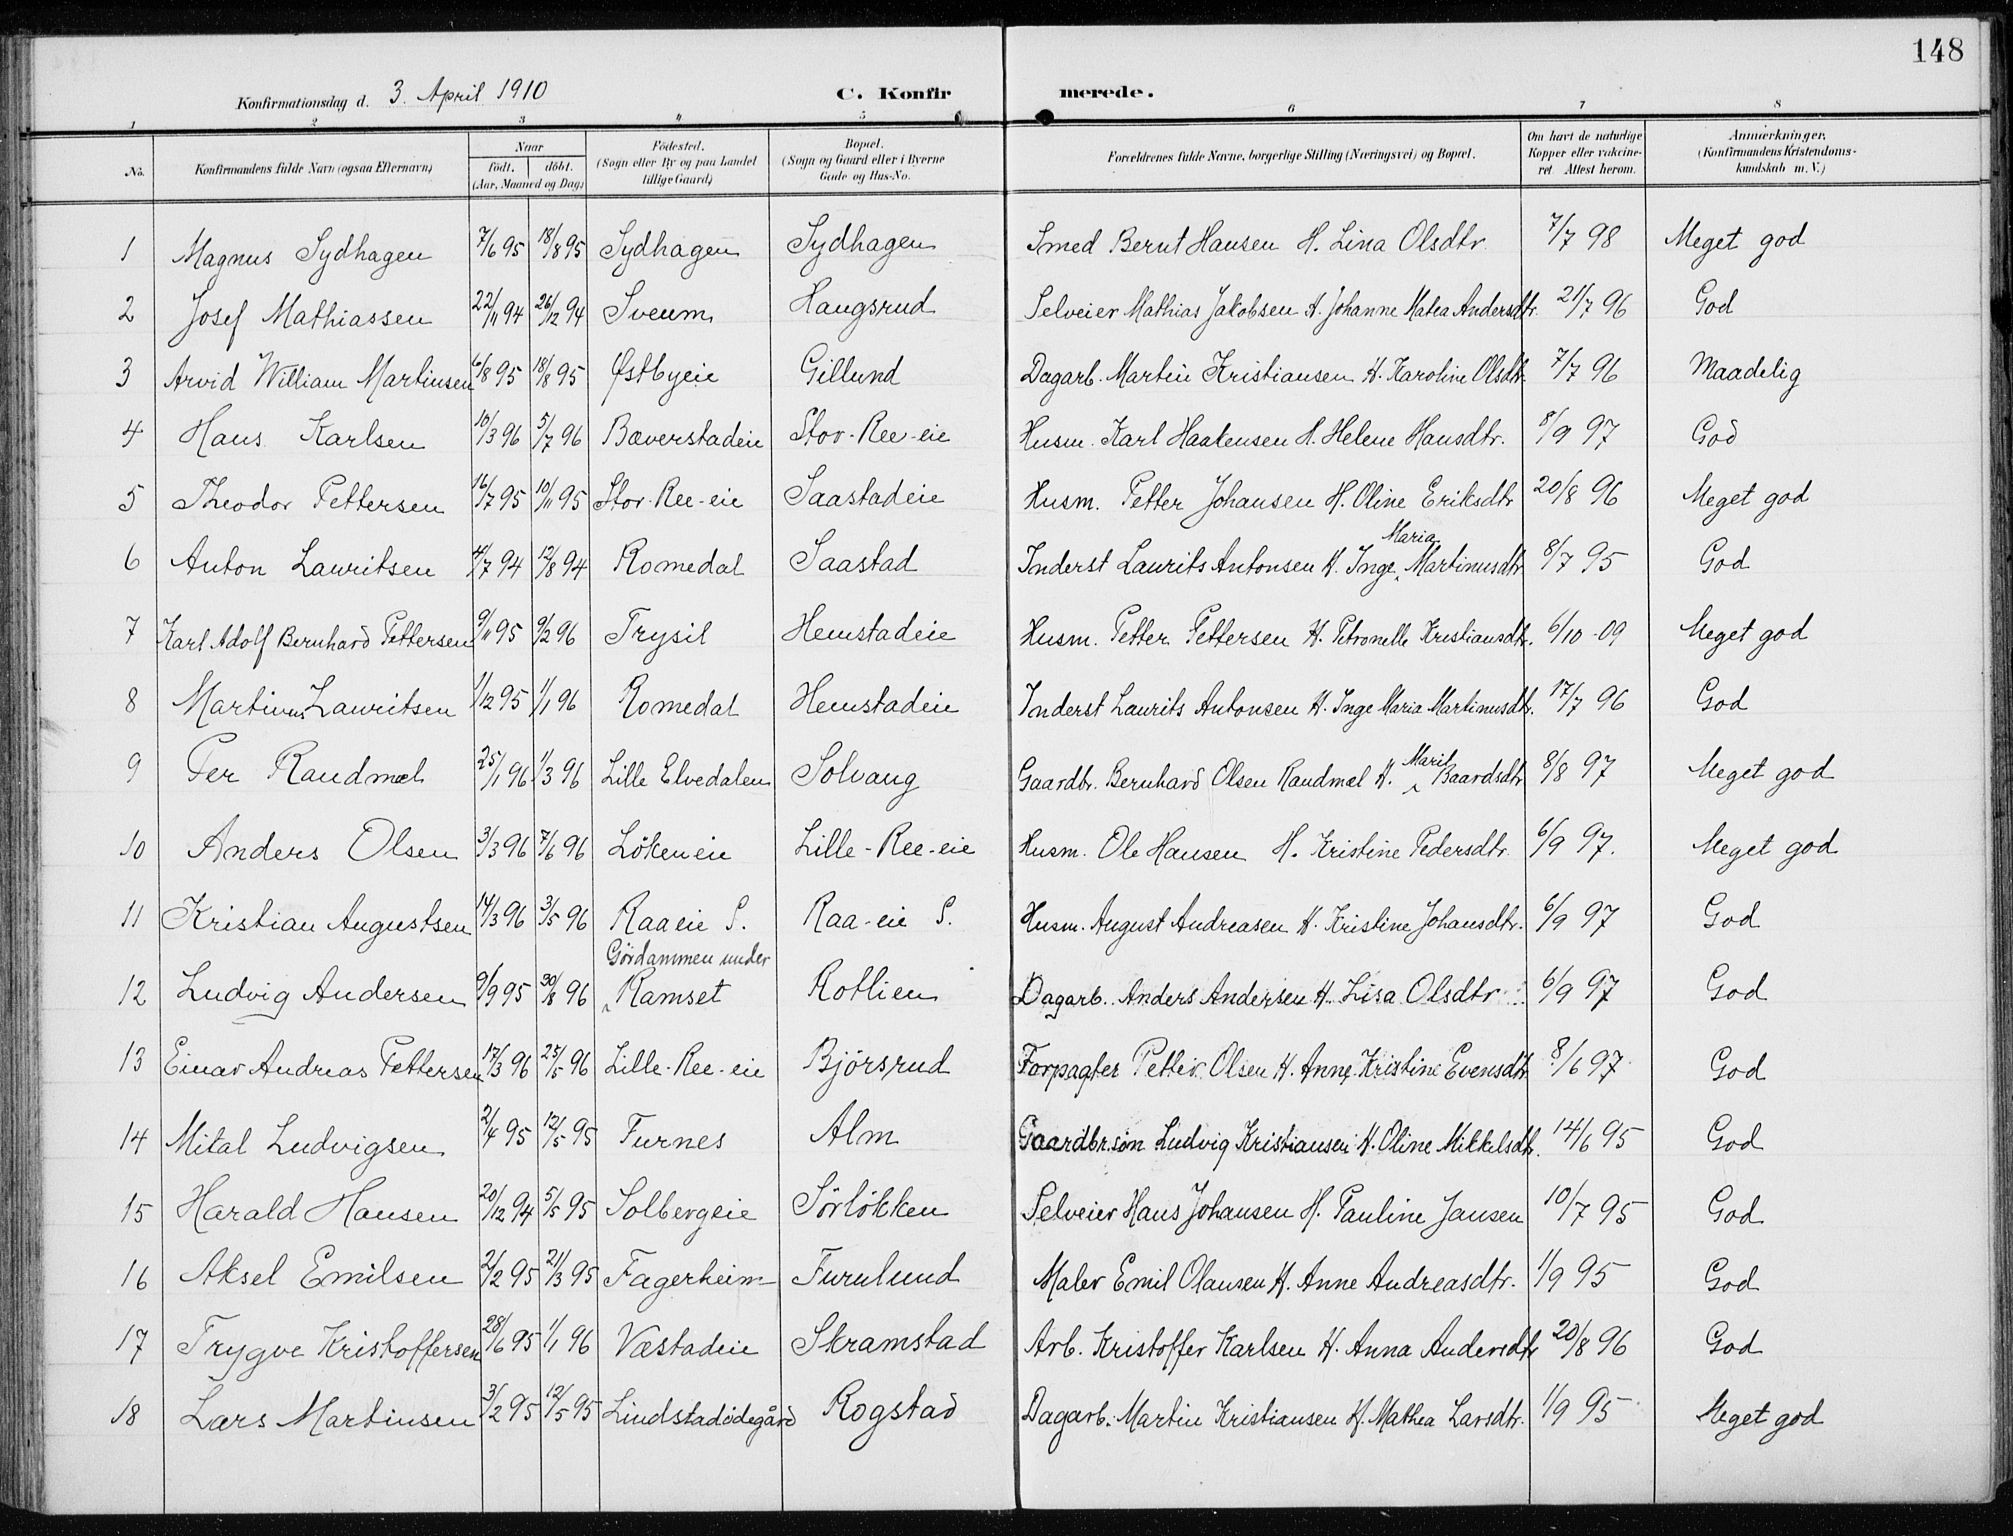 148
Konfirmationsdag d. 3. April 1910 C. Konfirmerede.
1 2 3 4 5 6 7 8
No. Konfirmandens fulde Navn (ogsaa Efternavn) Naar født. døbt. (Aar, Maaned og Dag) Fødested. (Sogn eller By og paa Landet tillige Gaard) Bopæl. (Sogn og Gaard eller i Byerne Gade og Hus-No. Forældrenes fulde Navne, borgerlige Stilling (Næringsvei) og Bopæl. Om havt de naturlige Kopper eller vakcineret. Attest herom. Anmærkninger. (Konfirmandens Kristendomskundskab m. V.)
1 Magnus Sydhagen 7/6 95 18/8 95 Sydhagen Sydhagen Smed Bernt Hansen H. Lina Olsdtr. 7/7 98 Meget god
2 Josef Mathiassen 22/11 94 26/12 94 Sveum Haugsrud Selveier Mathias Jakobsen H. Johanne Matea Andersdtr. 21/7 96 God
3 Arvid William Martinsen 6/8 95 18/8 95 Østbyeie Gillund Dagarb. Martin Kristiansen H. Karoline Olsdtr. 7/7 96 Maadelig
4 Hans Karlsen 10/3 96 5/7 96 Bæverstadeie Stor-Ree-eie Husm. Karl Haakensen H. Helene Hansdtr. 8/9 97 God
5 Theodor Pettersen 16/7 95 10/11 95 Stor-Ree-eie Saastadeie Husm. Petter Johansen H. Oline Eriksdtr 20/8 96 Meget god
6 Anton Lauritsen 4/7 94 12/8 94 Romedal Saastad Inderst Laurits Antonsen H. Inge Maria Martinusdtr 8/7 95 God
7 Karl Adolf Bernhard Pettersen 9/11 95 9/2 96 Trysil Hemstadeie Husm. Petter Pettersen H. Petronelle Kristiansdtr. 6/10 -09 Meget god
8 Martinus Lauritsen 1/12 95 1/1 96 Romedal Hemstadeie Inderst Laurits Antonsen H. Inge Maria Martinusdtr. 17/7 96 God
9 Per Raudmæl 25/1 96 1/3 96 Lille Elvedalen Solvang Gaardbr. Bernhard Olsen Raudmæl H. Marit Baardsdtr 8/8 97 Meget god
10 Anders Olsen 3/3 96 7/6 96 Løkeneie Lille-Ree-eie Husm. Ole Hansen H. Kristine Pedersdtr. 6/9 97. Meget god
11 Kristian Augustsen 14/3 96 3/5 96 Raaeie S. Raa-eie S. Husm. August Andreasen H. Kristine Johansdtr. 6/9 97 God
12 Ludvig Andersen 9/9 95 30/8 96 Gördammen under Ramset Rotlien Dagarb. Anders Andersen H. Lisa Olsdtr. 6/9 97 God
13 Einar Andreas Pettersen 17/3 96 25/5 96 Lille-Ree-eie Bjørsrud Forpagter Petter Olsen H. Anne Kristine Evensdtr 8/6 97 God
14 Mital Ludvigsen 2/4 95 12/5 95 Furnes Alm Gaardbr.søn Ludvig Kristiansen H. Oline Mikkelsdtr. 14/6 95 God
15 Harald Hansen 20/12 94 5/5 95 Solbergeie Sørløkken Selveier Hans Johansen H. Pauline Jansen 10/7 95 God
16 Aksel Emilsen 2/2 95 21/3 95 Fagerheim Furulund Maler Emil Olausen H. Anne Andreasdtr. 1/9 95 God
17 Trygve Kristoffersen 28/6 95 1/1 96 Væstadeie Skramstad Arb. Kristoffer Karlsen H. Anna Andersdtr 20/8 96 God
18 Lars Martinsen 3/2 95 12/5 95 Lindstadødegård Rogstad Dagarb. Martin Kristiansen H. Mathea Larsdtr. 1/9 95 Meget god